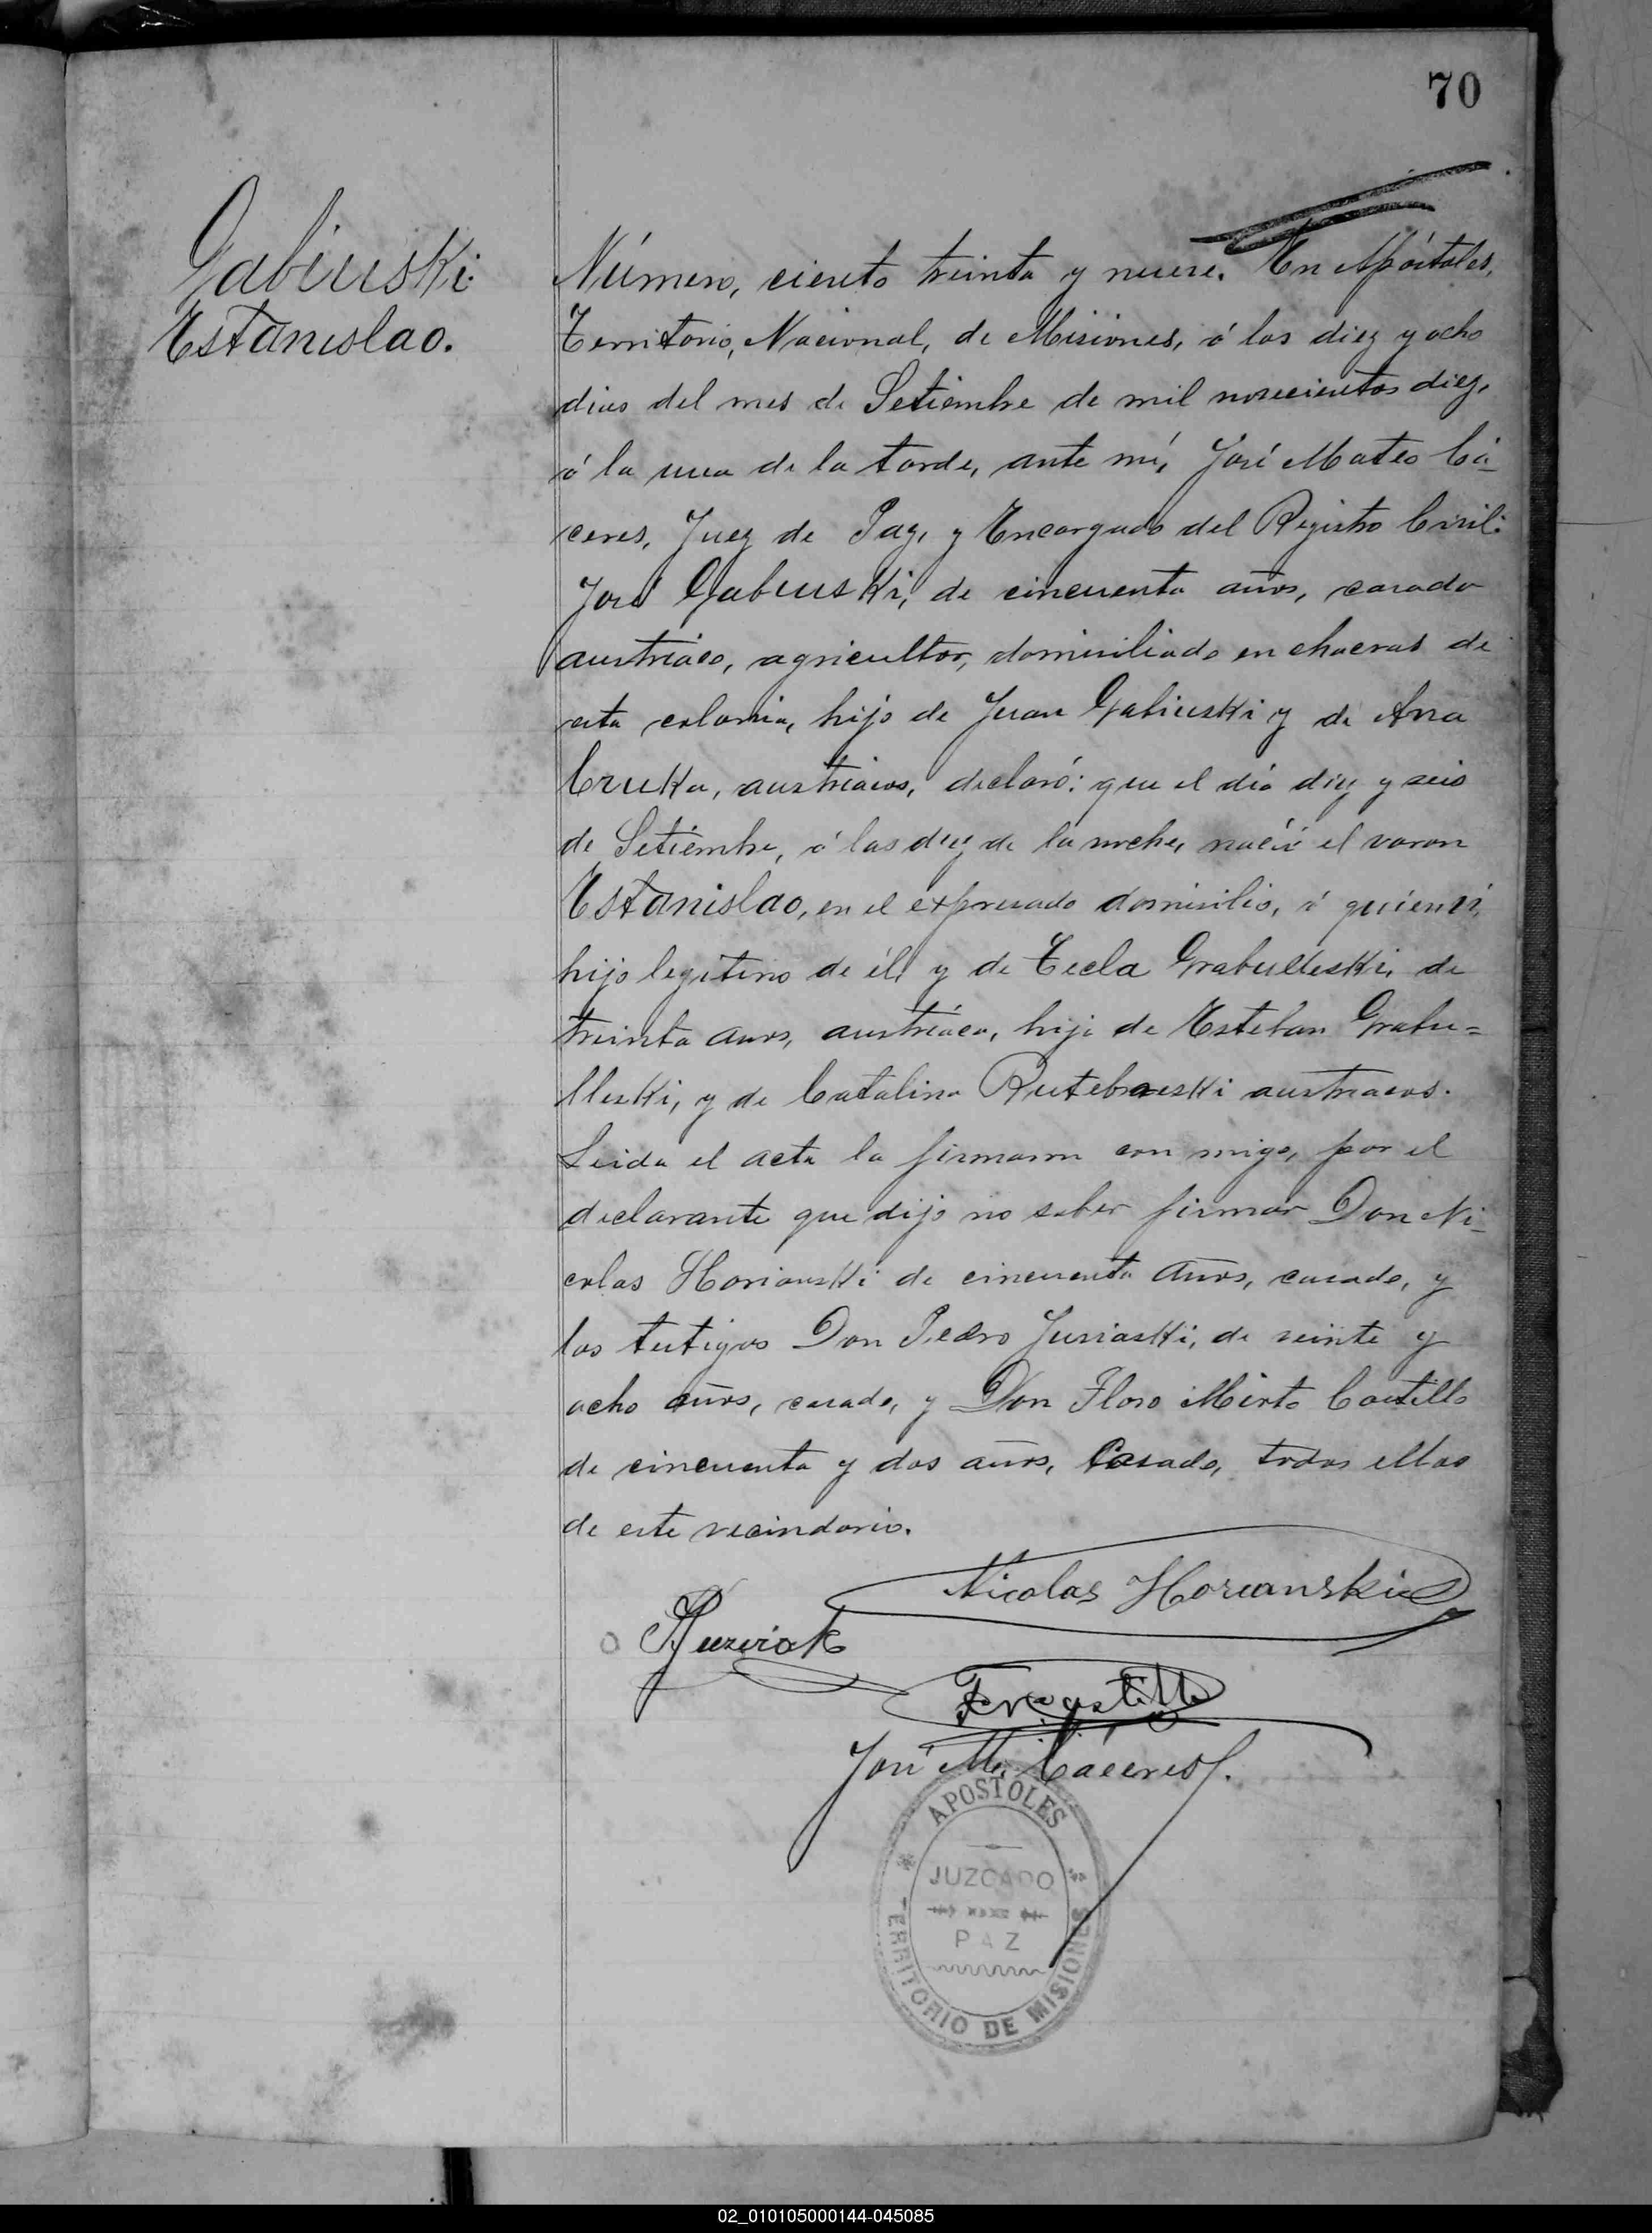 70
Gabiuski
Estanislao.
Número, ciento treinta y nueve. En Apóstoles,
Territorio, Nacional, de Misiones, á los diez y ocho
dias del mes de Setiembre de mil novecientos diez,
á la una de la tarde, ante mí, José Mateo Cá-
ceres, Juez de Paz, y Encargado del Registro Civil:
José Gabiuski, de cincuenta años, casado
austriáco, agricultor, domiciliado en chacras de
esta colonia, hijo de Juan Gabiuski y de Ana
Czuka, austriacos, declaró: que el día diez y seis
de Setiembre, á las diez de la noche, nació el varon
Estanislao, en el expresado domicilio, á quien ví,
hijo legitimo de él, y de Tecla Grabulleski, de
treinta años, austriáca, hija de Esteban Grabu=
lleski, y de Catalina Rutebraeski austriacos.
Leida el acta la firmaron con migo, por el
declarante que dijo no saber firmar Don Ni-
colas Horianski de cincuenta años, casado, y
los testigos Don Pedro Jusiaski, de veinte y
ocho años, casado, y Don Floro Mirto Castillo
de cincuenta y dos años, Casado, todos ellos
de este vecindario.
Nicolas Horianski
F M Castillo
José M. Cáceres
APOSTOLES
JUZGADO
PAZ
TERRITORIO DE MISIONES
02_010105000144-045085